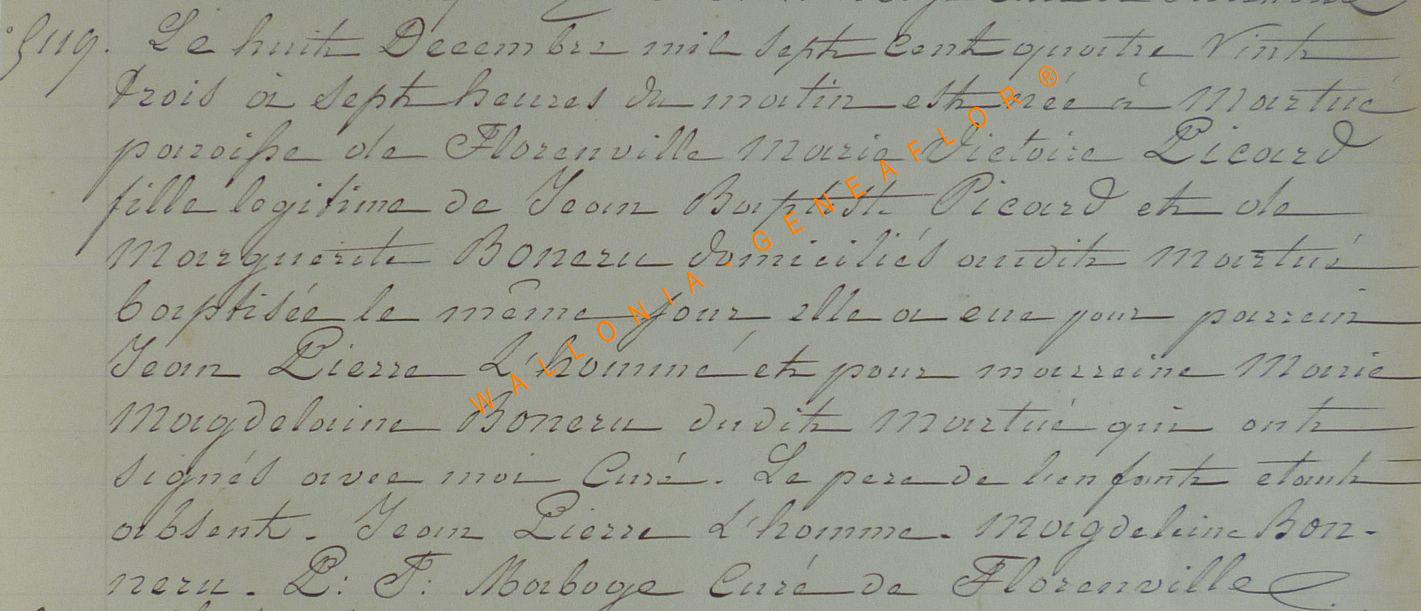 5119. Le huit Decembre mil sept Cent quatre Vint
trois à sept heures du matin est née à Martué
paroisse de Florenville Marie Victoire Picard
fille legitime de Jean Baptist Picard et de
Marguerite Boneru domiciliés audit Martué
baptisée le même jour elle a eue pour parrein
Jean Pierre L'hommé et pour marreine Marie
Magdelaine Boneru dudit Martué qui ont
signés avec moi Curé. Le pere de lenfant etant
absent. Jean Pierre L'homme. Magdeleine Bon-
neru. P: F: Maboge Curé de Florenville
WALLONIA - GENEAFLOR®